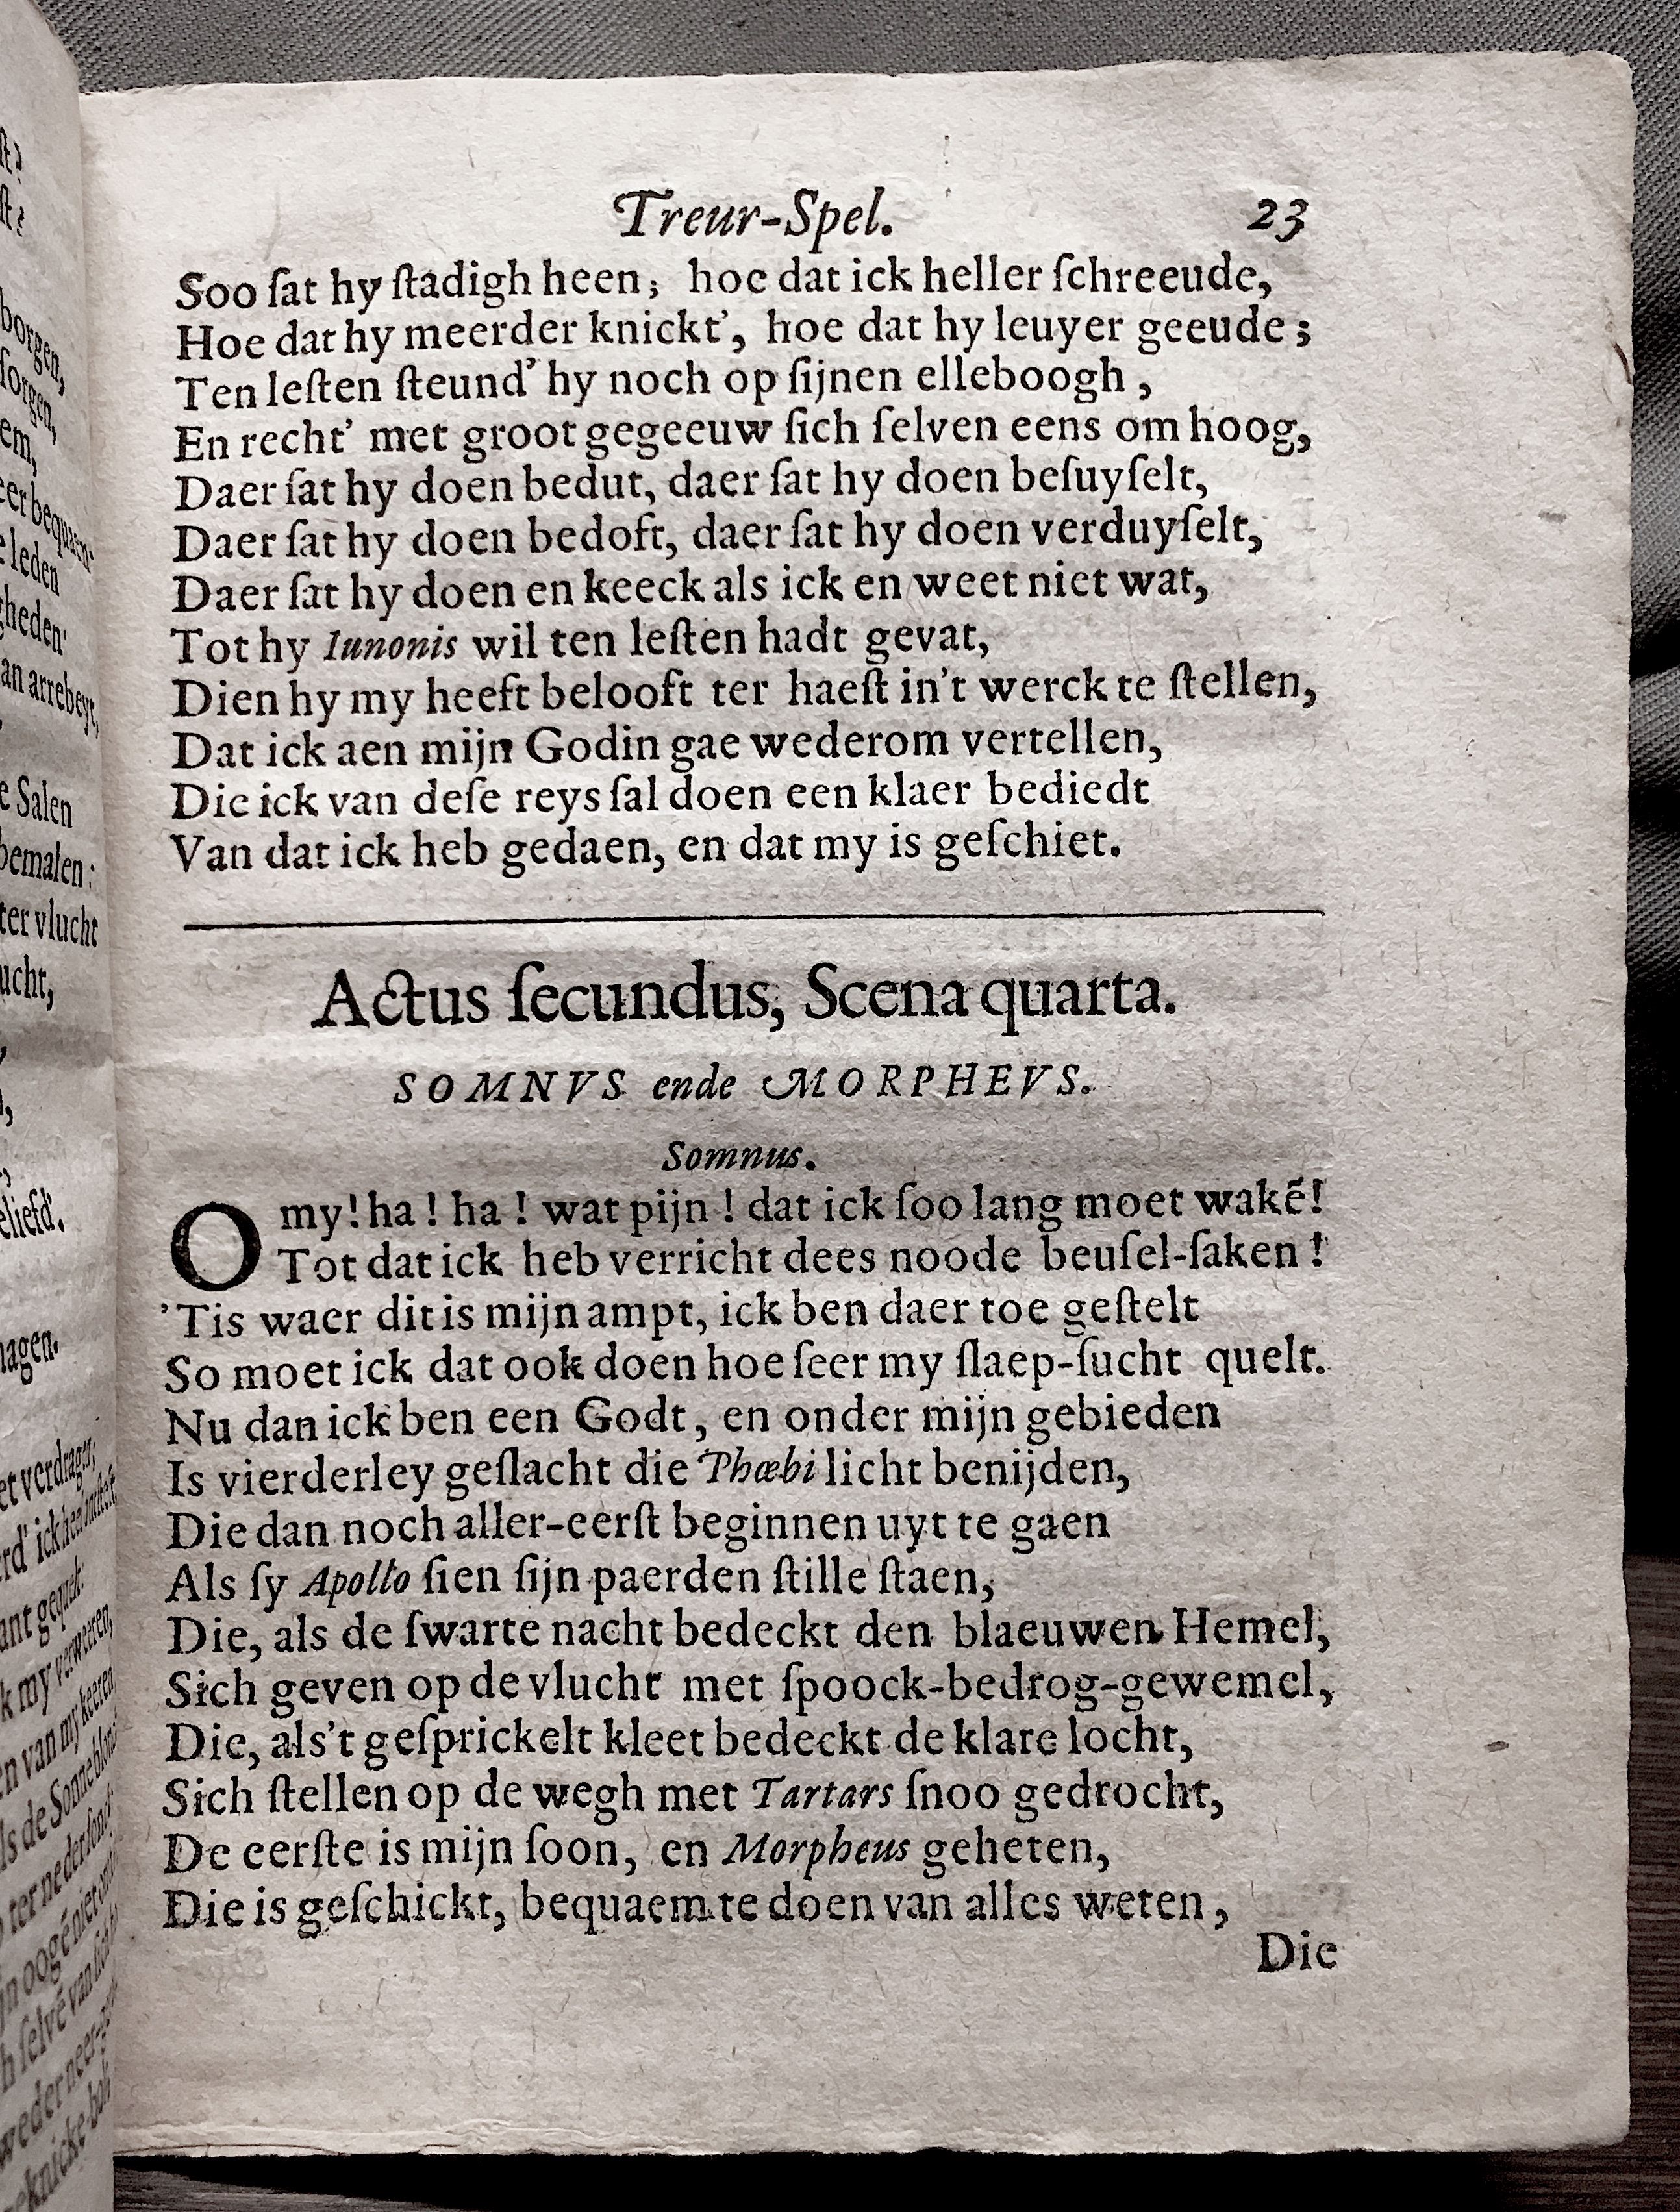 Treur-Spel. 23
Soo ſat hy ſtadigh heen; hoe dat ick heller ſchreeude,
Hoe dat hy meerder knickt', hoe dat hy leuyer geeude;
Ten leſten ſteund' hy noch op ſijnen elleboogh,
En recht' met groot gegeeuw ſich ſelven eens om hoog,
Daer ſat hy doen bedut, daer ſat hy doen beſuyſelt,
Daer ſat hy doen bedoft, daer ſat hy doen verduyſelt,
Daer ſat hy doen en keeck als ick en weet niet wat,
Tot hy Iunonis wil ten leſten hadt gevat,
Dien hy my heeft belooft ter haeſt in't werck te ſtellen,
Dat ick aen mijn Godin gae wederom vertellen,
Die ick van deſe reys ſal doen een klaer bediedt
Van dat ick heb gedaen, en dat my is geſchiet.
Actus ſecundus, Scena quarta.
SOMNVS ende MORPHEVS.
Somnus.
O my! ha! ha! wat pijn! dat ick ſoo lang moet wakē!
Tot dat ick heb verricht dees noode beuſel-ſaken!
'Tis waer dit is mijn ampt, ick ben daer toe geſtelt
So moet ick dat ook doen hoe ſeer my ſlaep-ſucht quelt.
Nu dan ick ben een Godt, en onder mijn gebieden
Is vierderley geſlacht die Phœbi licht benijden,
Die dan noch aller-eerſt beginnen uyt te gaen
Als ſy Apollo ſien ſijn paerden ſtille ſtaen,
Die, als de ſwarte nacht bedeckt den blaeuwen Hemel,
Sich geven op de vlucht met ſpoock-bedrog-gewemel,
Die, als't geſprickelt kleet bedeckt de klare locht,
Sich ſtellen op de wegh met Tartars ſnoo gedrocht,
De eerſte is mijn ſoon, en Morpheus geheten,
Die is geſchickt, bequaem te doen van alles weten,
Die